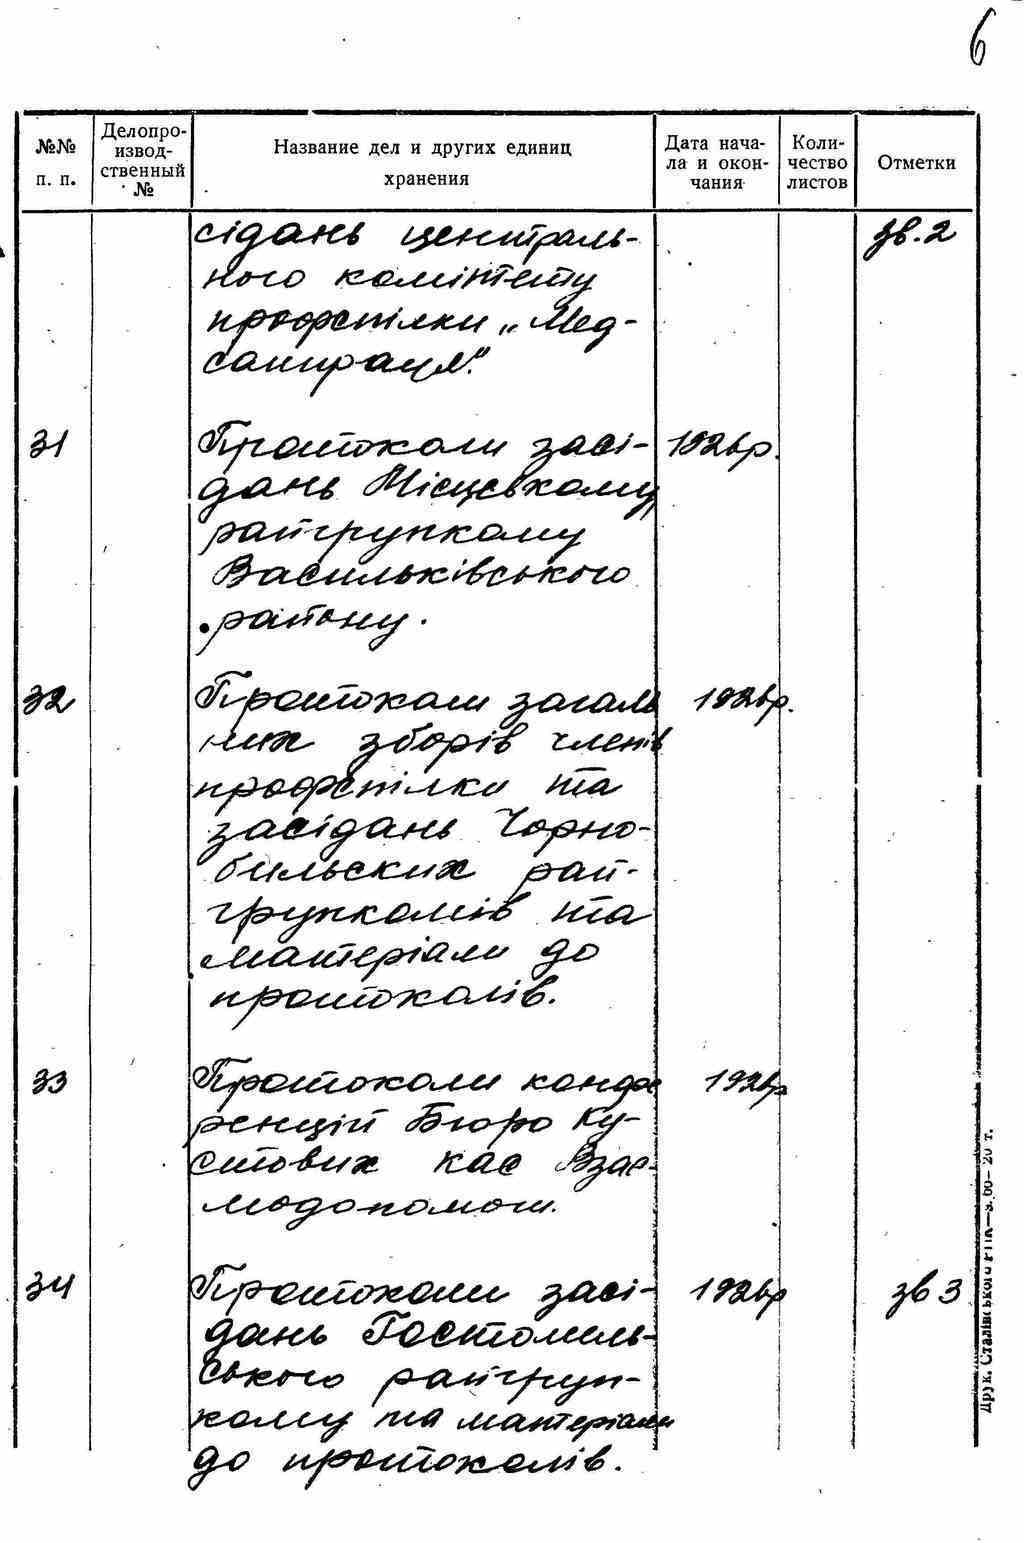 6
№№ п. п.
Делопро-
извод-
ственный
№
Название дел и других единиц
хранения
Дата нача-
ла и окон-
чания
Коли-
чество
листов
Отметки
сідань централь- зв. 2
ного комітету
профспілки „Мед-
санпраця".
31 Протоколи засі- 1926р.
дань Місцевкому,
райгрупкому
Васильківського
району.
32 Протоколи загаль 1926р.
них зборів членів
профспілки та
засідань Чорно-
бильских рай-
групкомів та
матеріали до
протоколів.
33 Протоколи конфе 1926р
ренцій Бюро Ку-
стових кас Взає-
модопомоги.
34 Протоколи засі- 1926р зв 3
дань Гостомель-
ського райгруп-
кому та матеріали
до протоколів.
Друк. Сталінського